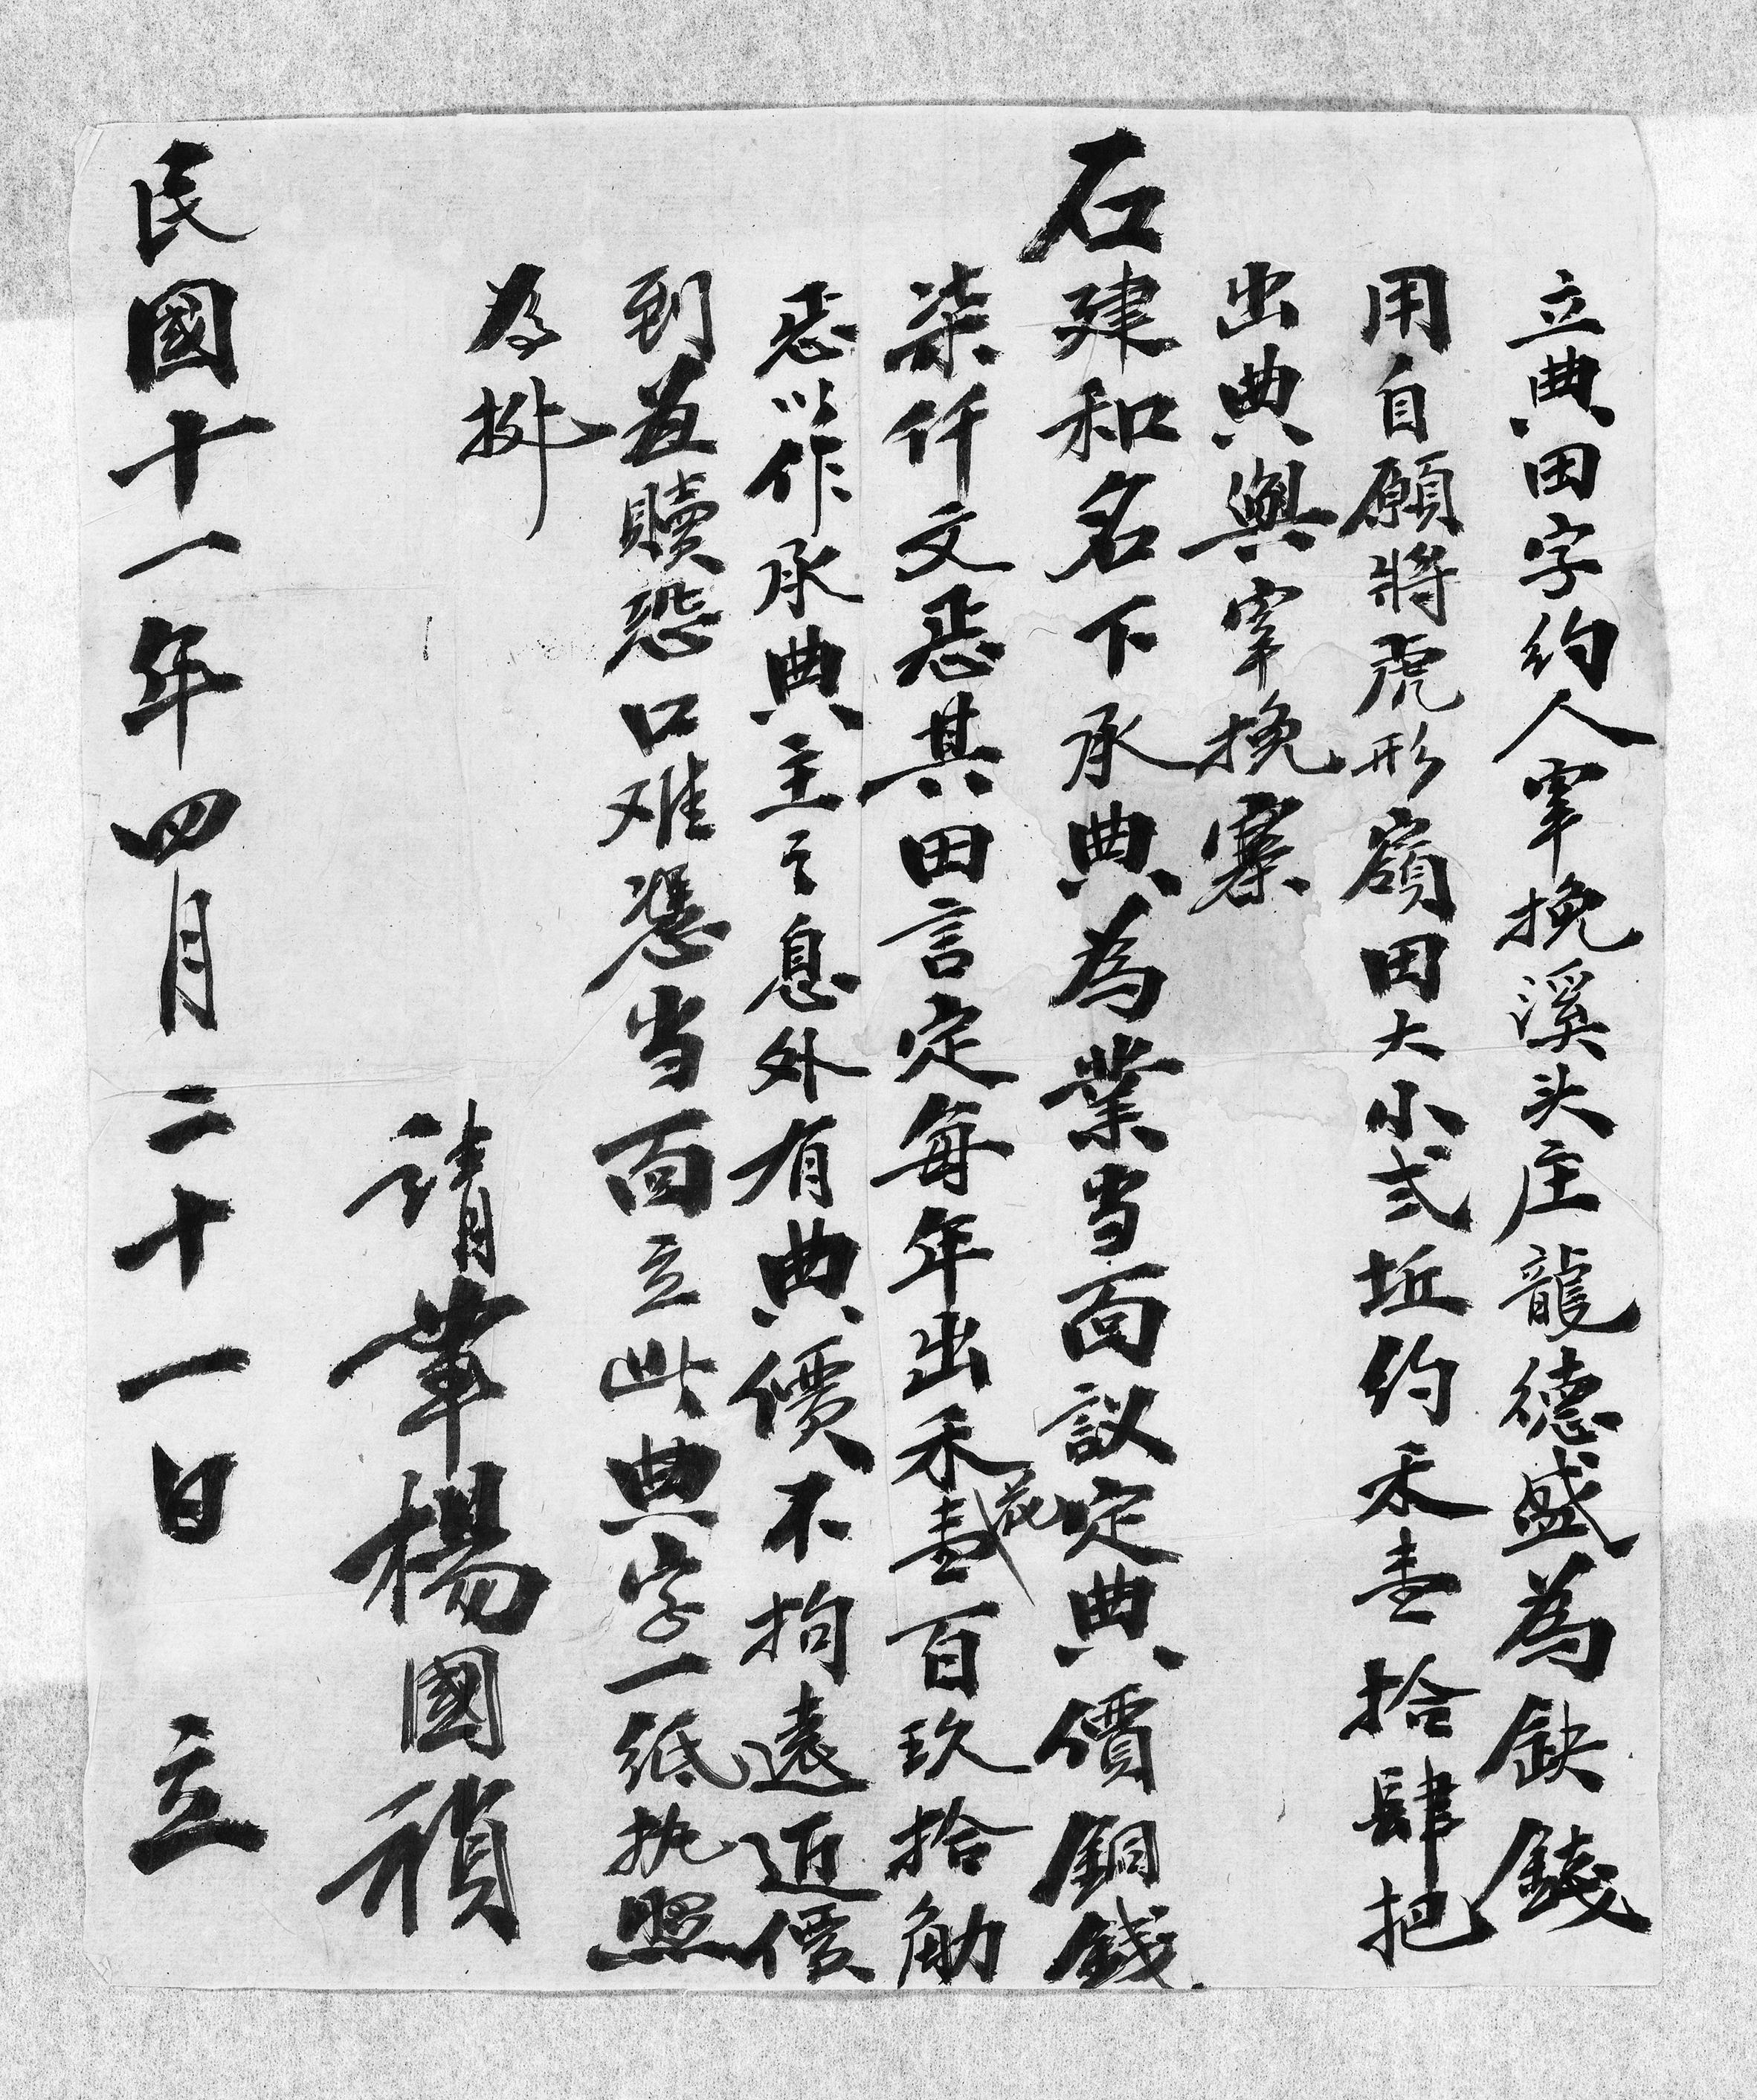 立典田字約人宰挽溪头庄龍德盛為缺錢
用自願將虎形嶺田大小弍坵約禾壹拾肆把
出典與宰挽寨
石建和名下承典為業当面議定典價銅錢
柒仟文惡其田言定每年出禾花壹百玖拾觔
惡以作承典主之息外有典價不拘遠近價
到益贖恐口难憑当面立此典字一紙执照
為拠
請筆楊國禎
民國十一年四月二十一日 立